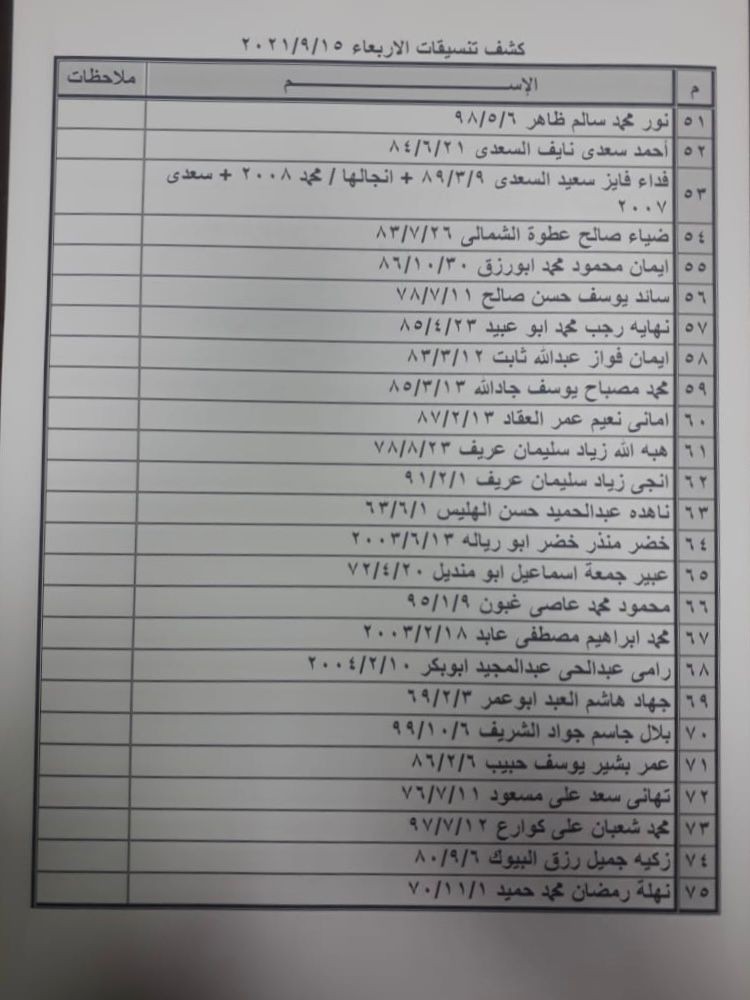 كشف تنسيقات الاربعاء ٢٠٢١/٩/١٥
م الإســـــــــم ملاحظات
٥١ نور محمد سالم ظاهر ٩٨/٥/٦
٥٢ أحمد سعدى نايف السعدى ٨٤/٦/٢١
٥٣ فداء فايز سعيد السعدى ٨٩/٣/٩ + انجالها / محمد ٢٠٠٨ + سعدى
٢٠٠٧
٥٤ ضياء صالح عطوة الشمالى ٨٣/٧/٢٦
٥٥ ايمان محمود محمد ابورزق ٨٦/١٠/٣٠
٥٦ ساند يوسف حسن صالح ٧٨/٧/١١
٥٧ نهايه رجب محمد ابو عبيد ٨٥/٤/٢٣
٥٨ ايمان فواز عبدالله ثابت ٨٣/٣/١٢
٥٩ محمد مصباح يوسف جادالله ٨٥/٣/١٣
٦٠ امانى نعيم عمر العقاد ٨٧/٢/١٣
٦١ هبه الله زياد سليمان عريف ٧٨/٨/٢٣
٦٢ انجى زياد سليمان عريف ٩١/٢/١
٦٣ ناهده عبدالحميد حسن الهليس ٦٣/٦/١
٦٤ خضر منذر خضر ابو رياله ٢٠٠٣/٦/١٣
٦٥ عبير جمعة اسماعيل ابو منديل ٧٢/٤/٢٠
٦٦ محمود محمد عاصى غبون ٩٥/١/٩
٦٧ محمد ابراهيم مصطفى عابد ٢٠٠٣/٢/١٨
٦٨ رامى عبدالحى عبدالمجيد ابوبكر ٢٠٠٤/٢/١٠
٦٩ جهاد هاشم العبد ابوعمر ٦٩/٢/٣
٧٠ بلال جاسم جواد الشريف ٩٩/١٠/٦
٧١ عمر بشير يوسف حبيب ٨٦/٢/٦
٧٢ تهانى سعد على مسعود ٧٦/٧/١١
٧٣ محمد شعبان على كوارع ٩٧/٧/١٢
٧٤ زكيه جميل رزق البيوك ٨٠/٩/٦
٧٥ نهلة رمضان محمد حميد ٧٠/١١/١